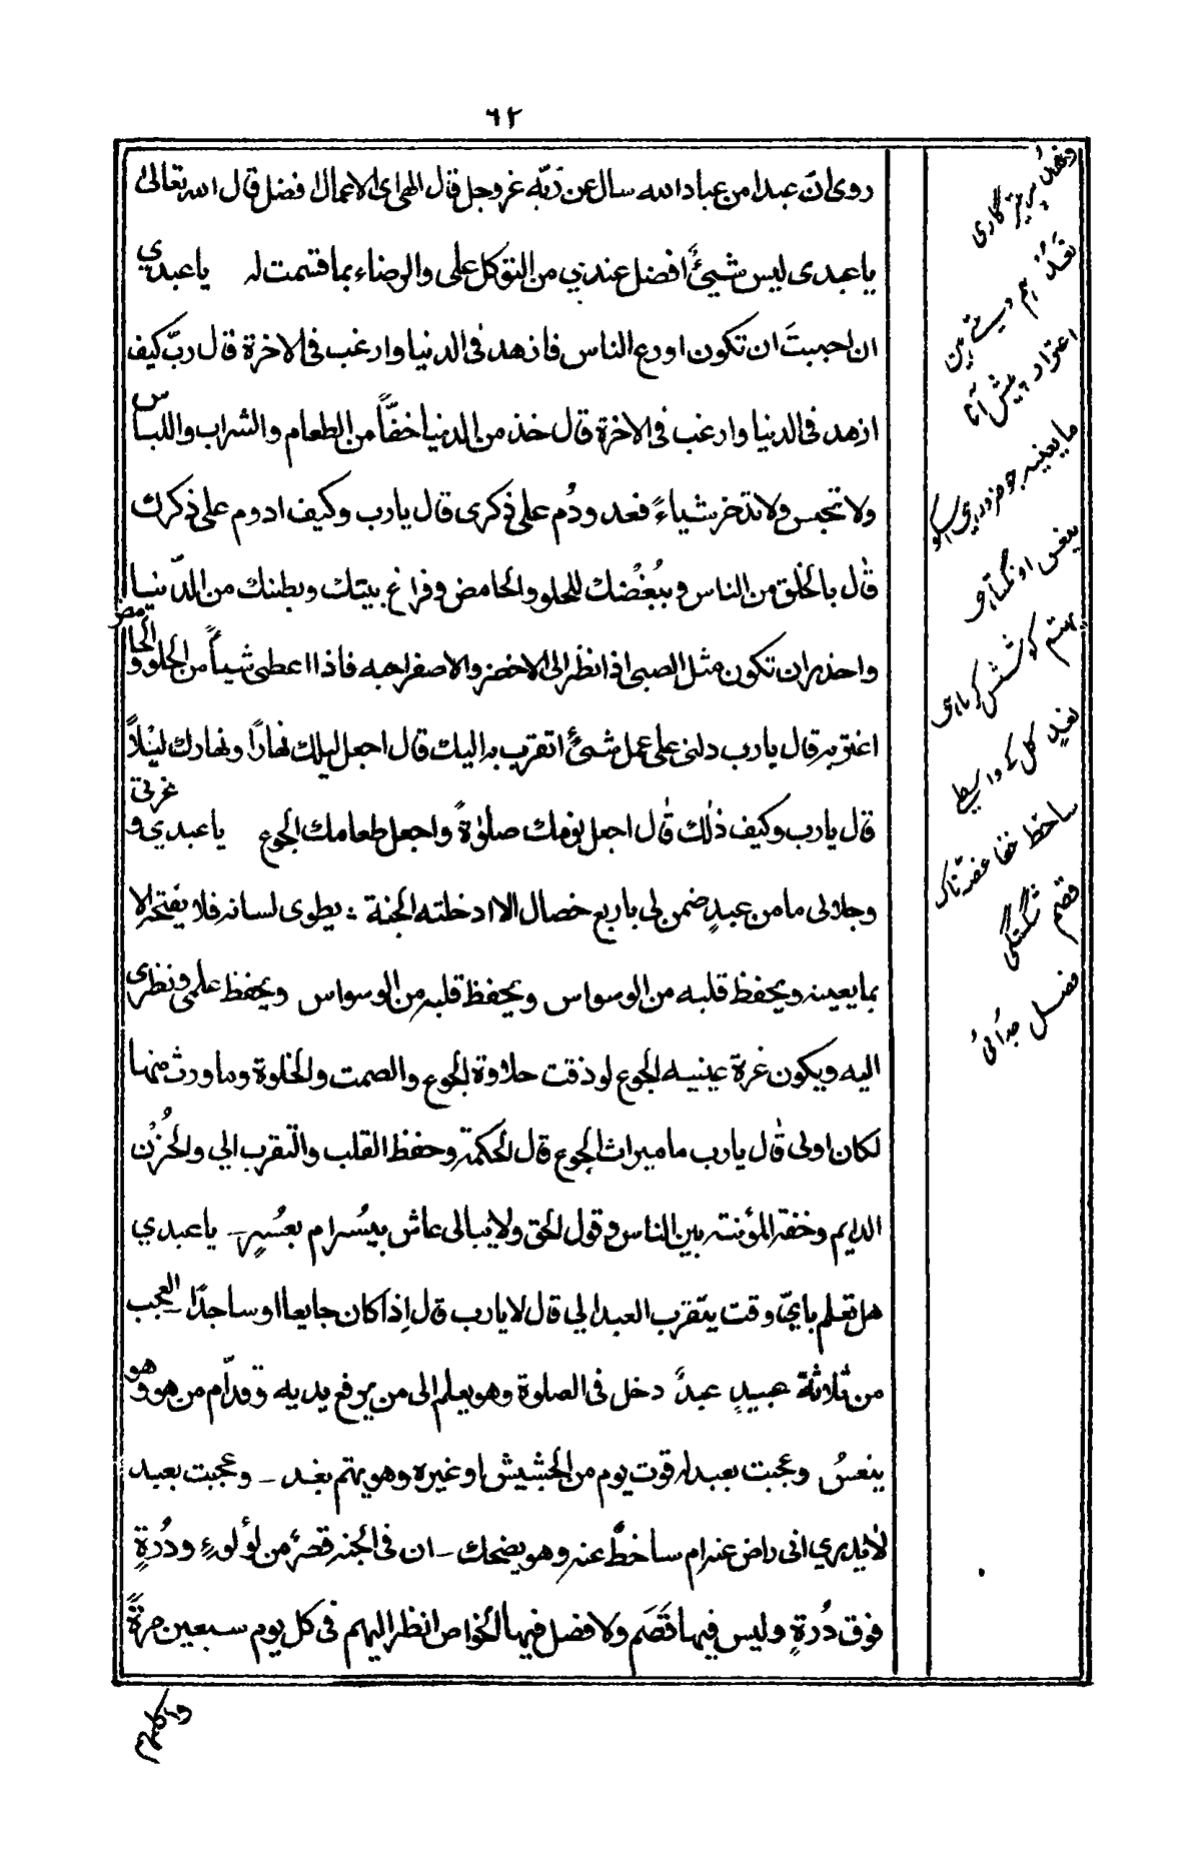 ٦٢
روى ان عبدا من عباد الله سال عن ربّه عزوجل قال الهى اى الاعمال افضل قال الله تعالىٰ
يا عبدى ليس شيئٌ افضل عندي من التوكل على والرضاء بما قسمت له يا عبدي
ان احببتَ ان تكون اورع الناس فازهد فى الدنيا وارغب فى الاخرة قال ربّ كيف
ازهد فى الدنيا وارغب فى الاخرة قال خذ من الدنيا خفّاً من الطعام والشراب واللباس
ولا تحبس ولا تدخر شياءً فعد ودُم على ذكرى قال يارب وكيف ادوم على ذكرك
قال بالخلق من الناس وببُغْضك للحلو والحامض وفراغ بيتك وبطنك من الدّنيا
واحذر ان تكون مثل الصبى اذا نظر الى الاخضر والاصفر احبه فاذا اعطى شيأً من الحلو والحامض
اغتر به قال يارب دلنى على عمل شئٌ اتقرب به اليك قال اجعل ليلك نهارًا ونهارك ليْلاً
قال يارب وكيف ذلك قال اجعل نومك صلوٰةً واجعل طعامك الجوع يا عبدي وعزتى
وجلالى ما من عبدٍ ضمن لى باربع خصال الا ادخلته الجنة : يطوى لسانه فلا يفتحه الا
بما يعينه ويحفظ قلبه من الوسواس ويحفظ قلبه من الوسواس ويحفظ علمى ونظرى
اليه ويكون غرة عينيه الجوع لو ذقت حلاوة الجوع والصمت والخلوة وما ورث منها
لكان اولى قال يارب ما ميراث الجوع قال الحكمة وحفظ القلب والتقرب الي والحُزْن
الدايم وخفة المؤنته بين الناس وقول الحق ولا يبالى عاش بيُسْر ام بعُسْرٍ۔ يا عبدي
هل تعلم بايّ وقت يتقرب العبد الي قال لا يارب قال اِذا كان جايعا او ساجدًا العجب
من ثلاثة عبيدٍ عبدٌ دخل فى الصلوة وهو يعلم الى من يرفع يديه وقدّام من هو وهو
ينعسُ وعجبت بعبد له قوت يوم من الحشيش او غيره وهو يهتم بغد ۔ وعجبت بعبد
لا يدري انى راض عنه ام ساخطٌ عنه وهو يضحك ۔ ان فى الجنه قصرٌ من لؤلوءٍ ودُرةٍ
فوق دُرةٍ وليس فيها قَصَم ولا فصل فيها الخواص انظر اليهم فى كل يوم سبعين مرةً
پرہیزگاری
اغترار پیش آنا
ما يعينه جو ضروری
ينعس اونگتا ہے
يهتم کوشش کرتا ہے
لغدٍ کل کے واسطے
ساخط خفا غصہ ناک
قصم شکستگی
فصل جدائی